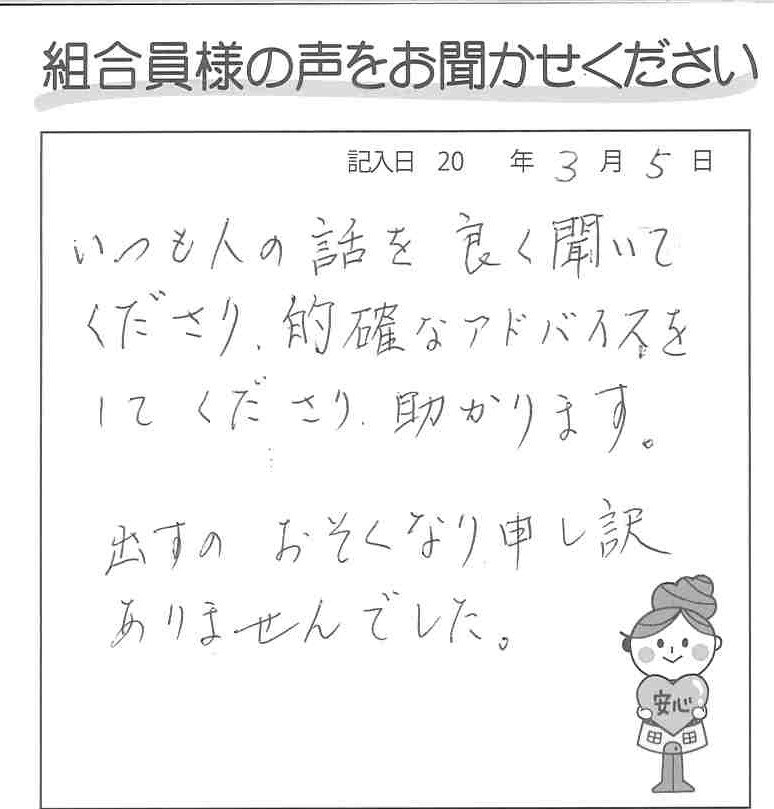 組合員様の声をお聞かせください
記入日 20 年 3 月 5 日
いつも人の話を良く聞いて
くださり、的確なアドバイスを
してくださり、助かります。
出すの おそくなり申し訳
ありませんでした。
安心